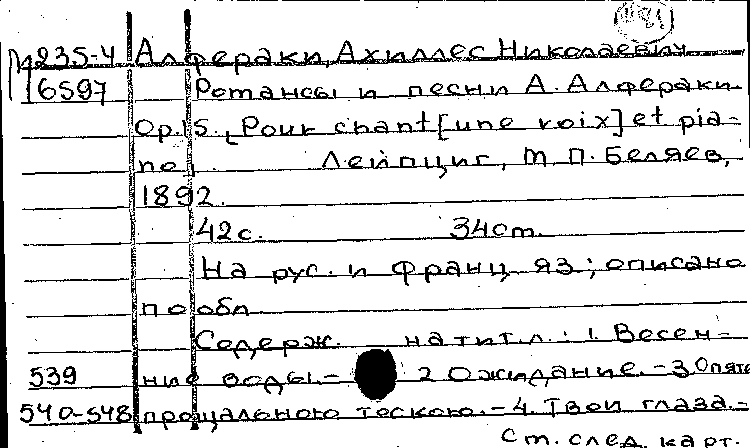 М235-4 Алфераки, Ахиллес Николаевич
6597 Романсы и песни А. Алфераки
Op.15. [Pour chant [une voix] et pia-
no]. Лейпциг, М.П. Беляев,
1892.
42с. 34 cm.
На рус. и франц. яз; описано
по обл
Содерж. на тит. л.: 1. Весен-
539 ние воды. – 2 Ожидание. – 3 Опять
540-548 прощального тоскою. – 4. Твои глаза. –
См. след. карт.